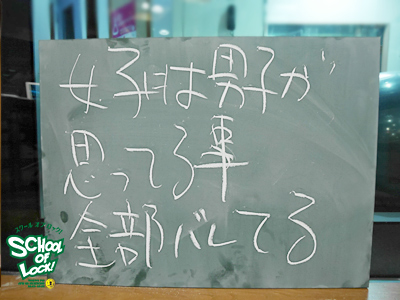 女子は男子が
思ってる事
全部バレてる
スクール・オブ・ロック!
SCHOOL
OF
LOCK!